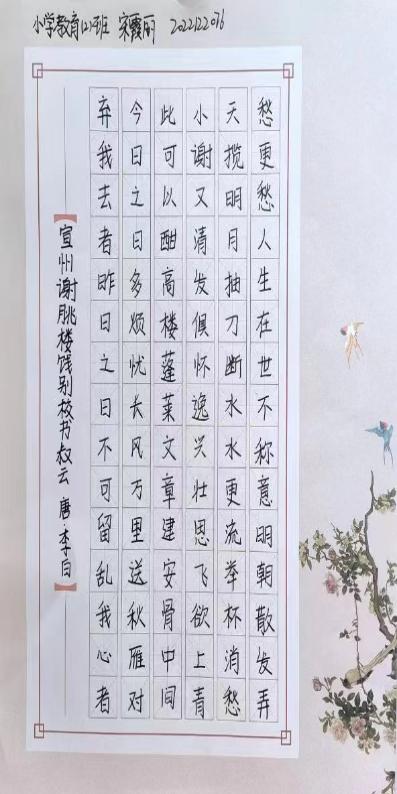 小学教育(2)班 宋霞丽 2022122076
【宣州谢朓楼饯别校书叔云 唐·李白】
弃我去者昨日之日不可留乱我心者
今日之日多烦忧长风万里送秋雁对
此可以酣高楼蓬莱文章建安骨中间
小谢又清发俱怀逸兴壮思飞欲上青
天揽明月抽刀断水水更流举杯消愁
愁更愁人生在世不称意明朝散发弄